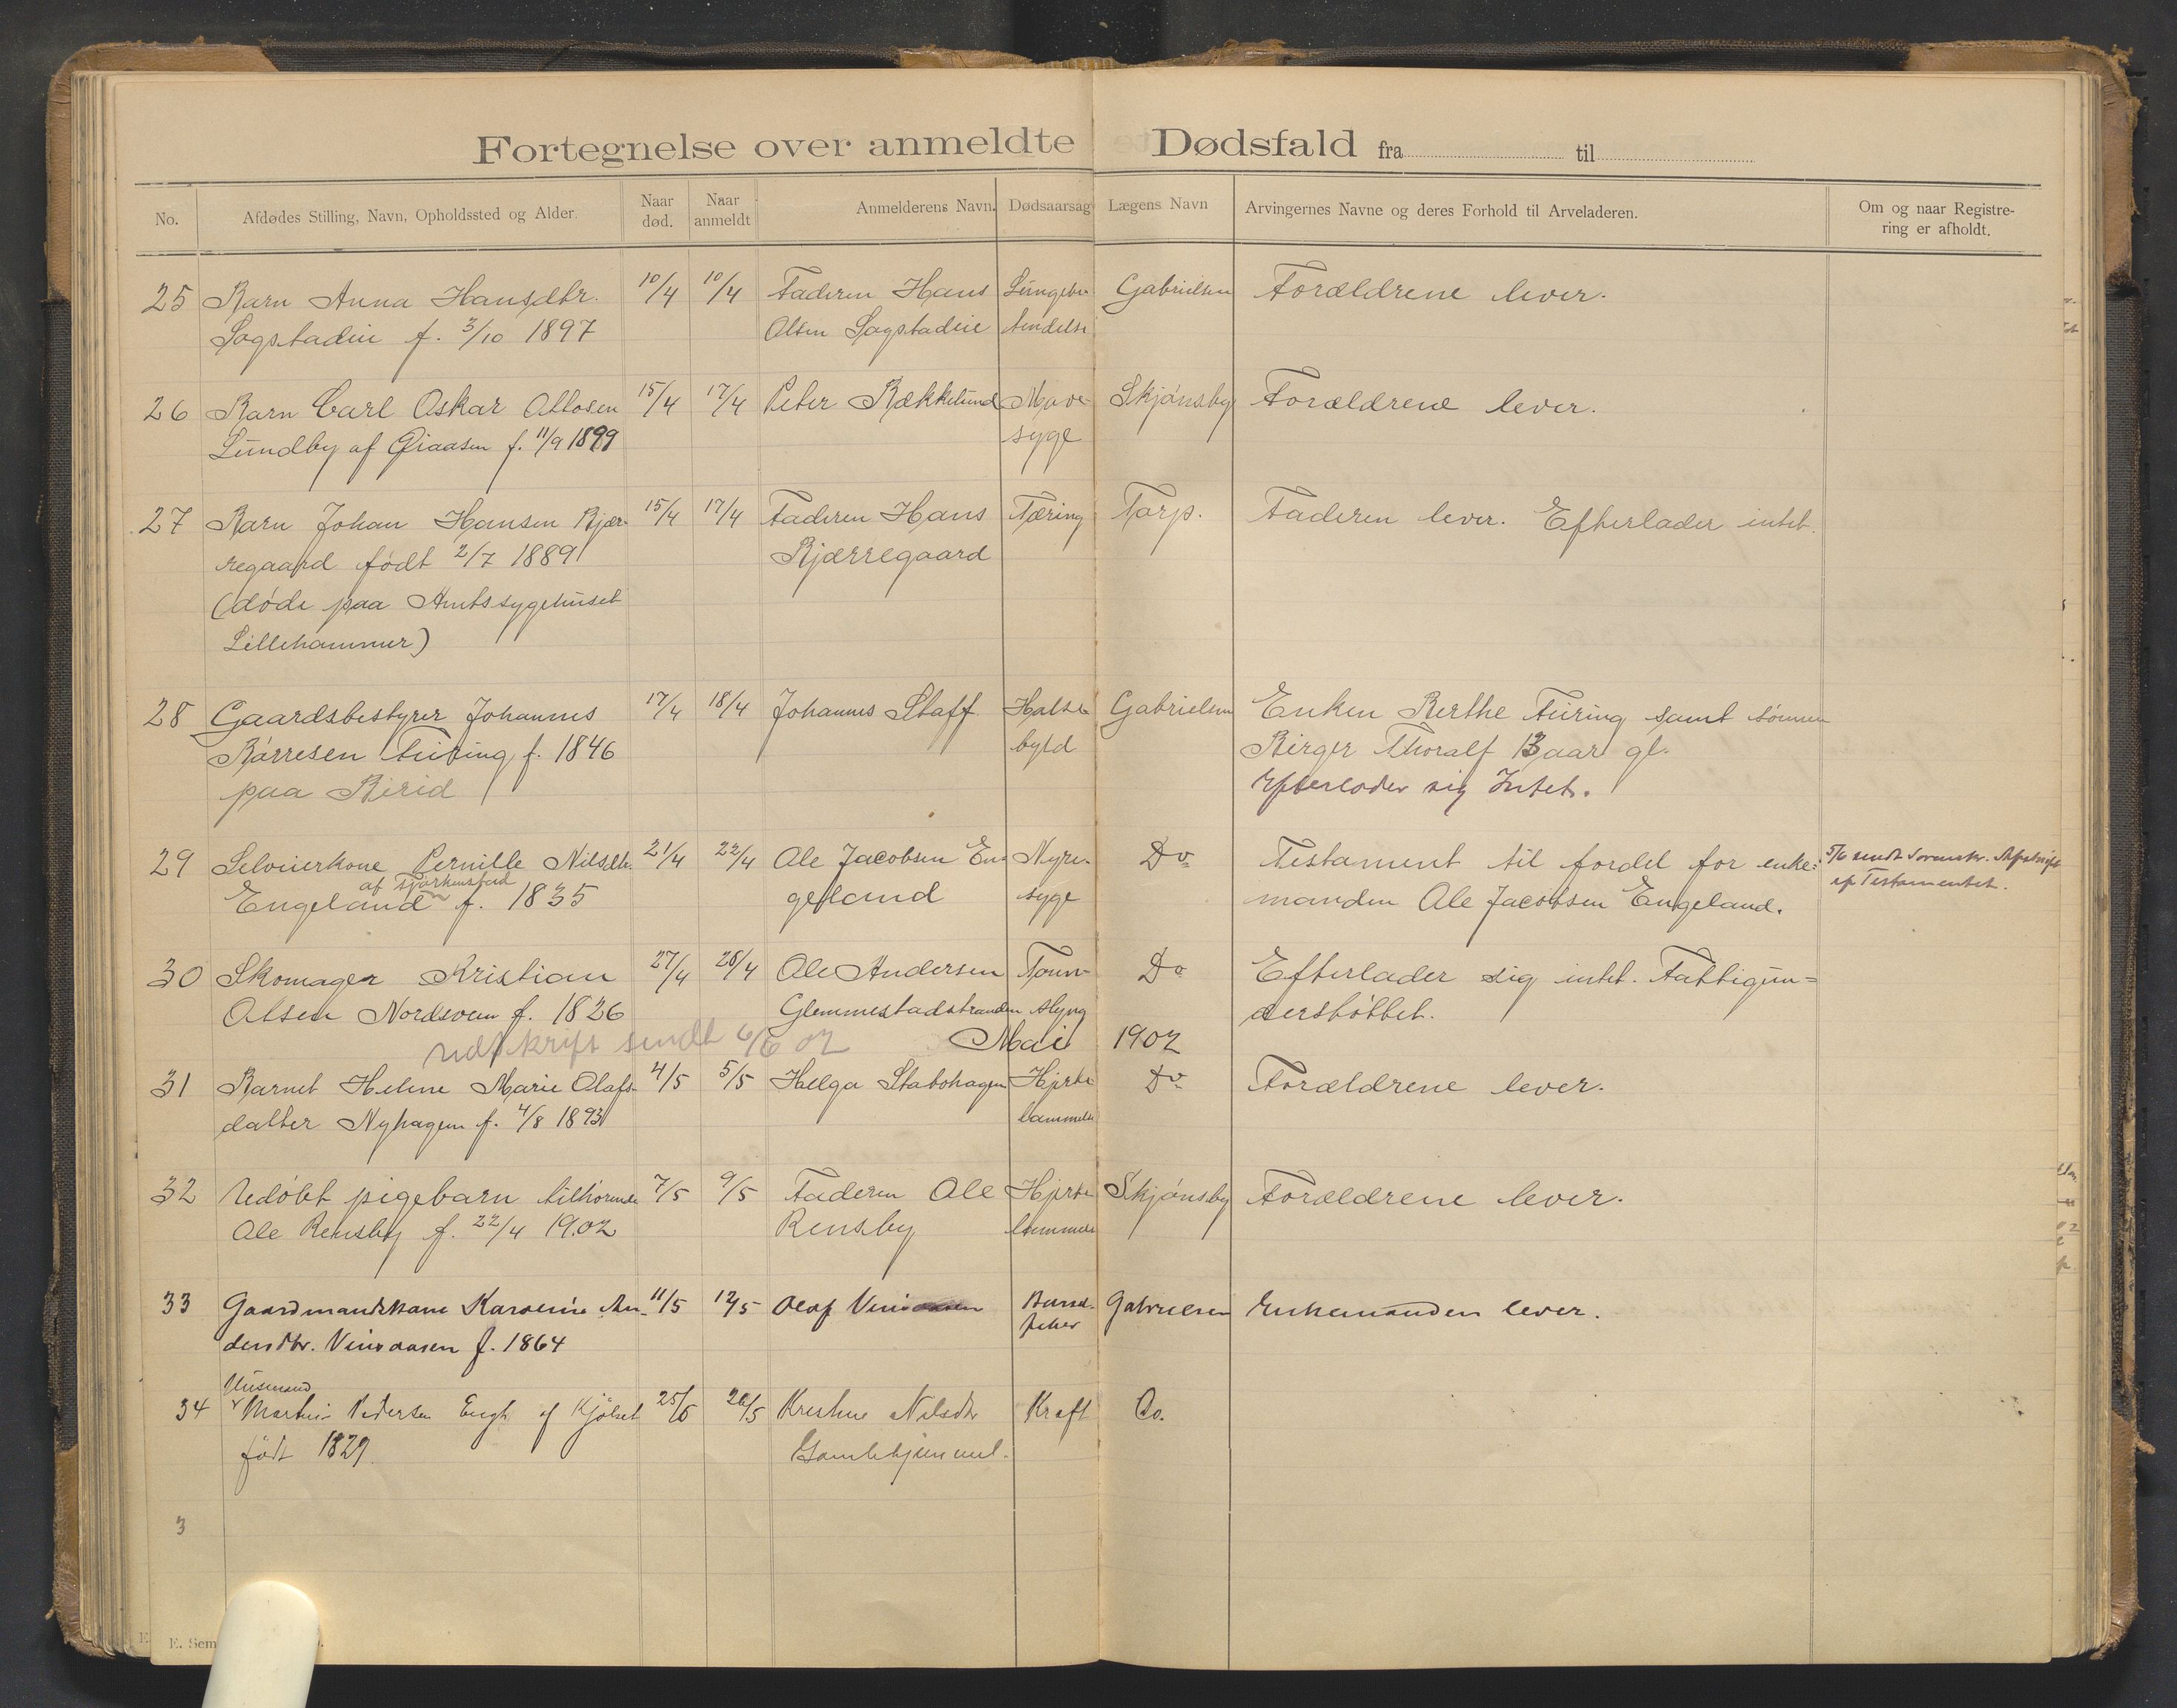 Fortegnelse over anmeldte Dødsfald fra til
No. Afdødes Stilling, Navn, Opholdssted og Alder. Naar død. Naar anmeldt Anmelderens Navn. Dødsaarsag Lægens Navn Arvingernes Navne og deres Forhold til Arveladeren. Om og naar Registrering er afholdt.
25 Barn Anna Hansdtr. 10/4 10/4 Faderen Hans Lungebe Gabrielsen Forældrene lever.
Sogstadeie f. 3/10 1897 Olsen Sogstadeie tendelse
26 Barn Carl Oskar Ottosen 15/4 17/4 Peter Bækkelund Mave- Skjønsby Forældrene lever.
Lundby af f. 11/9 1899 syge
27 Barn Johan Hansen Bjær- 15/4 17/4 Faderen Hans Tæring Tarp. Faderen lever. Efterlader intet.
regaard født 2/7 1889 Bjærregaard
(døde paa Amtssygehuset
Lillehammer)
28 Gaardsbestyrer Johannes 17/4 18/4 Johannes Staff Halse Gabrielsen Enken Berthe Furing samt sønnen
Børresen Furing f. 1846 byld Birger Thoralf 13 aar gl.
paa Birid Efterlader sig Intet.
29 Selveierkone Pernille Nilsdtr. 21/4 22/4 Ole Jacobsen En- Nyre- Do Testament til fordel for enke- 5/6 sendt Sorenskr. Afskrift
af
Engeland f. 1835 geland syge manden Ole Jacobsen Engeland. af Testamentet.
30 Skomager Kristian 27/4 28/4 Ole Andersen Do Efterlader sig intet. Fattigun-
Olsen Nordsveen f. 1826 Glemmestadstranden slyng derstøttet.
Udskrift sendt 6/5 02 Mai 1902
31 Barnet Helene Marie Olafs- 4/5 5/5 Helga Stabohagen Hjerte Do Forældrene lever.
datter Nyhagen f. 4/8 1893 lammelse
32 Udøbt pigebarn tilhørende 7/5 9/5 Faderen Ole Hjerte Skjønsby Forældrene lever.
Ole Rensby f. 22/4 1902 Rensby lammelse
33 Gaardmandskone Karoline An- 11/5 12/5 Olaf Barsel- Gabrielsen Enkemanden lever.
dersdtr. f. 1864 feber
Husmand
34 Martin Pedersen Engh af Kjølset 25/5 26/5 Kristine Nilsdtr Kræft Do.
født 1829
3
E. Sem